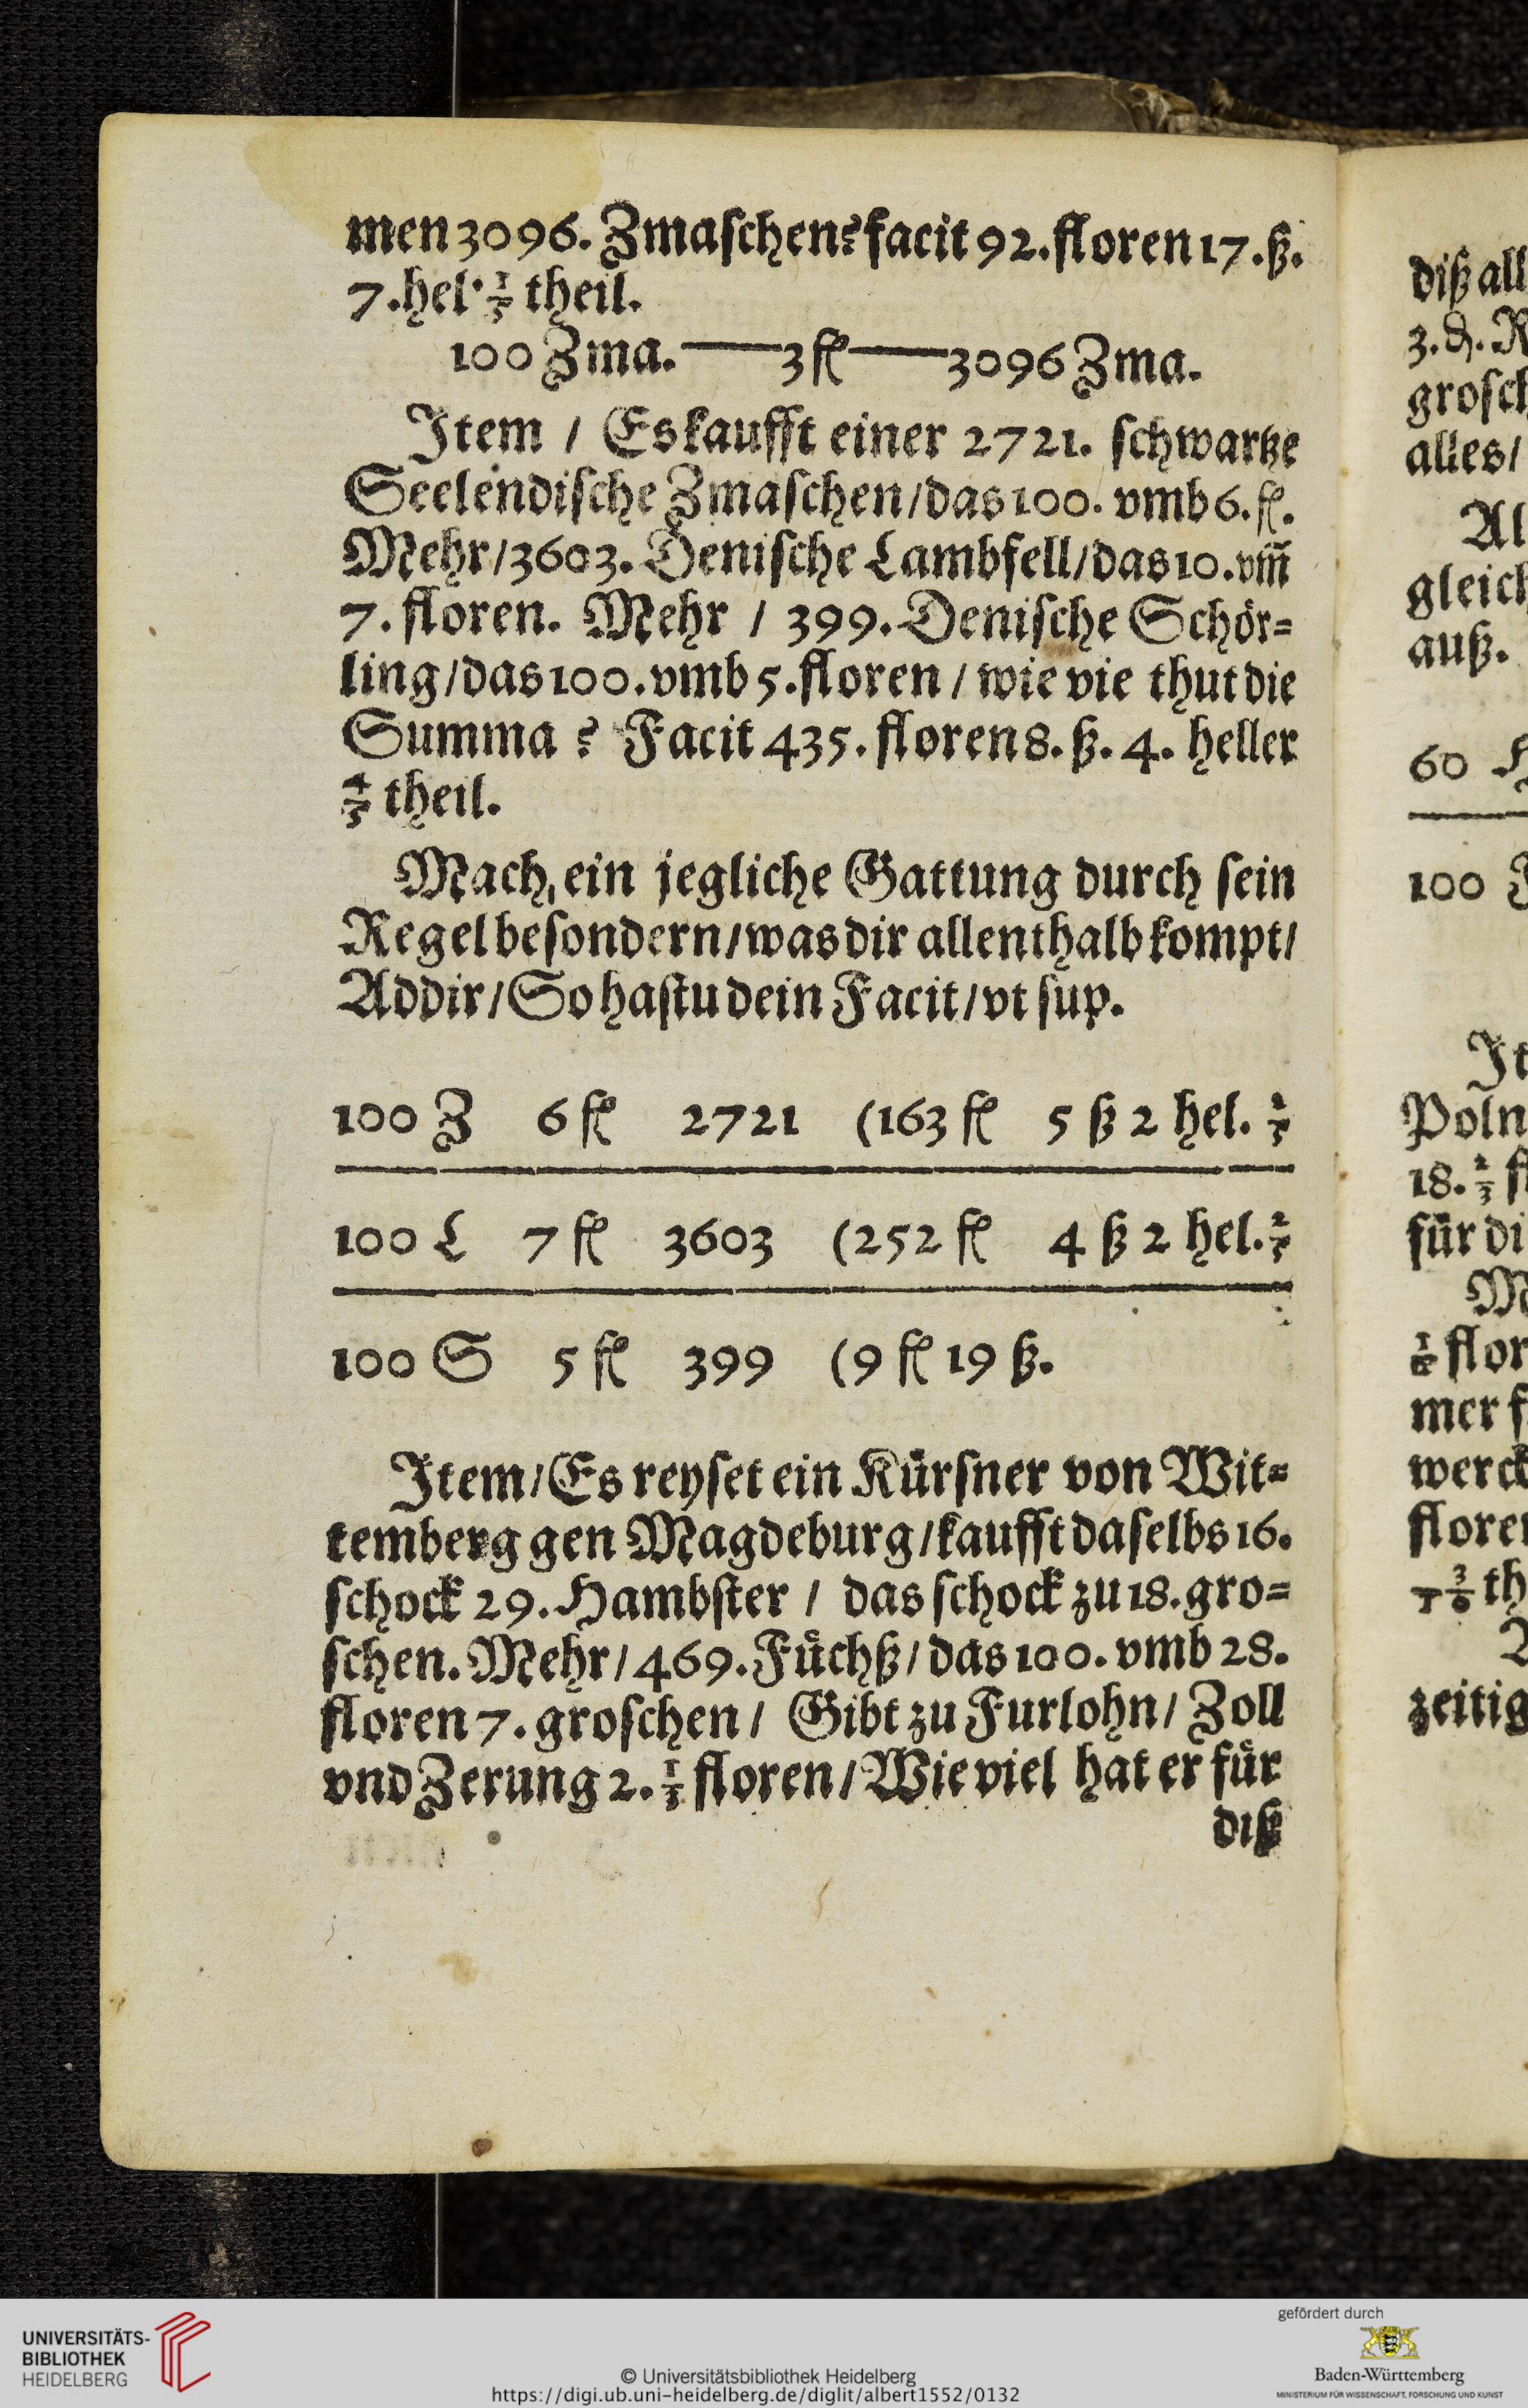 men 3096. Zmaschen? facit 92. floren 17. ß.
7. hel. 1/5 theil.
100 Zma. — 3 fl — 3096 Zma.
Item / Es kaufft einer 2721. schwartze
Seelendische Zmaschen / das 100. vmb 6. fl.
Mehr / 3603. Denische Lambfell / das 10. vm̃
7. floren. Mehr / 399. Denische Schör=
ling / das 100. vmb 5. floren / wie vie thut die
Summa ? Facit 435. floren 8. ß. 4. heller
4/5 theil.
Mach, ein jegliche Gattung durch sein
Regel besondern / was dir allenthalb kompt /
Addir / So hastu dein Facit / vt sup.
100 Z 6 fl 2721 (163 fl 5 ß 2 hel. 2/5
100 L 7 fl 3603 (252 fl 4 ß 2 hel. 2/5
100 S 5 fl 399 (9 fl 19 ß.
Item / Es reyset ein Kürsner von Wit=
temberg gen Magdeburg / kaufft daselbs 16.
schock 29. Hambster / das schock zu 18. gro=
schen. Mehr / 469. Füchß / das 100. vmb 28.
floren 7. groschen / Gibt zu Furlohn / Zoll
vnd Zerung 2. 1/5 floren / Wie viel hat er für
diß
diß all
3. ₰. R
grosch
alles /
Al
gleich
auß.
60 H
100
It
Poln
18. 2/3 fl
für di
M
flor
mer f
werck
floren
th
zeitig
UNIVERSITÄTS-
BIBLIOTHEK
HEIDELBERG
© Universitätsbibliothek Heidelberg
https://digi.ub.uni-heidelberg.de/diglit/albert1552/0132
gefördert durch
Baden-Württemberg
MINISTERIUM FÜR WISSENSCHAFT, FORSCHUNG UND KUNST